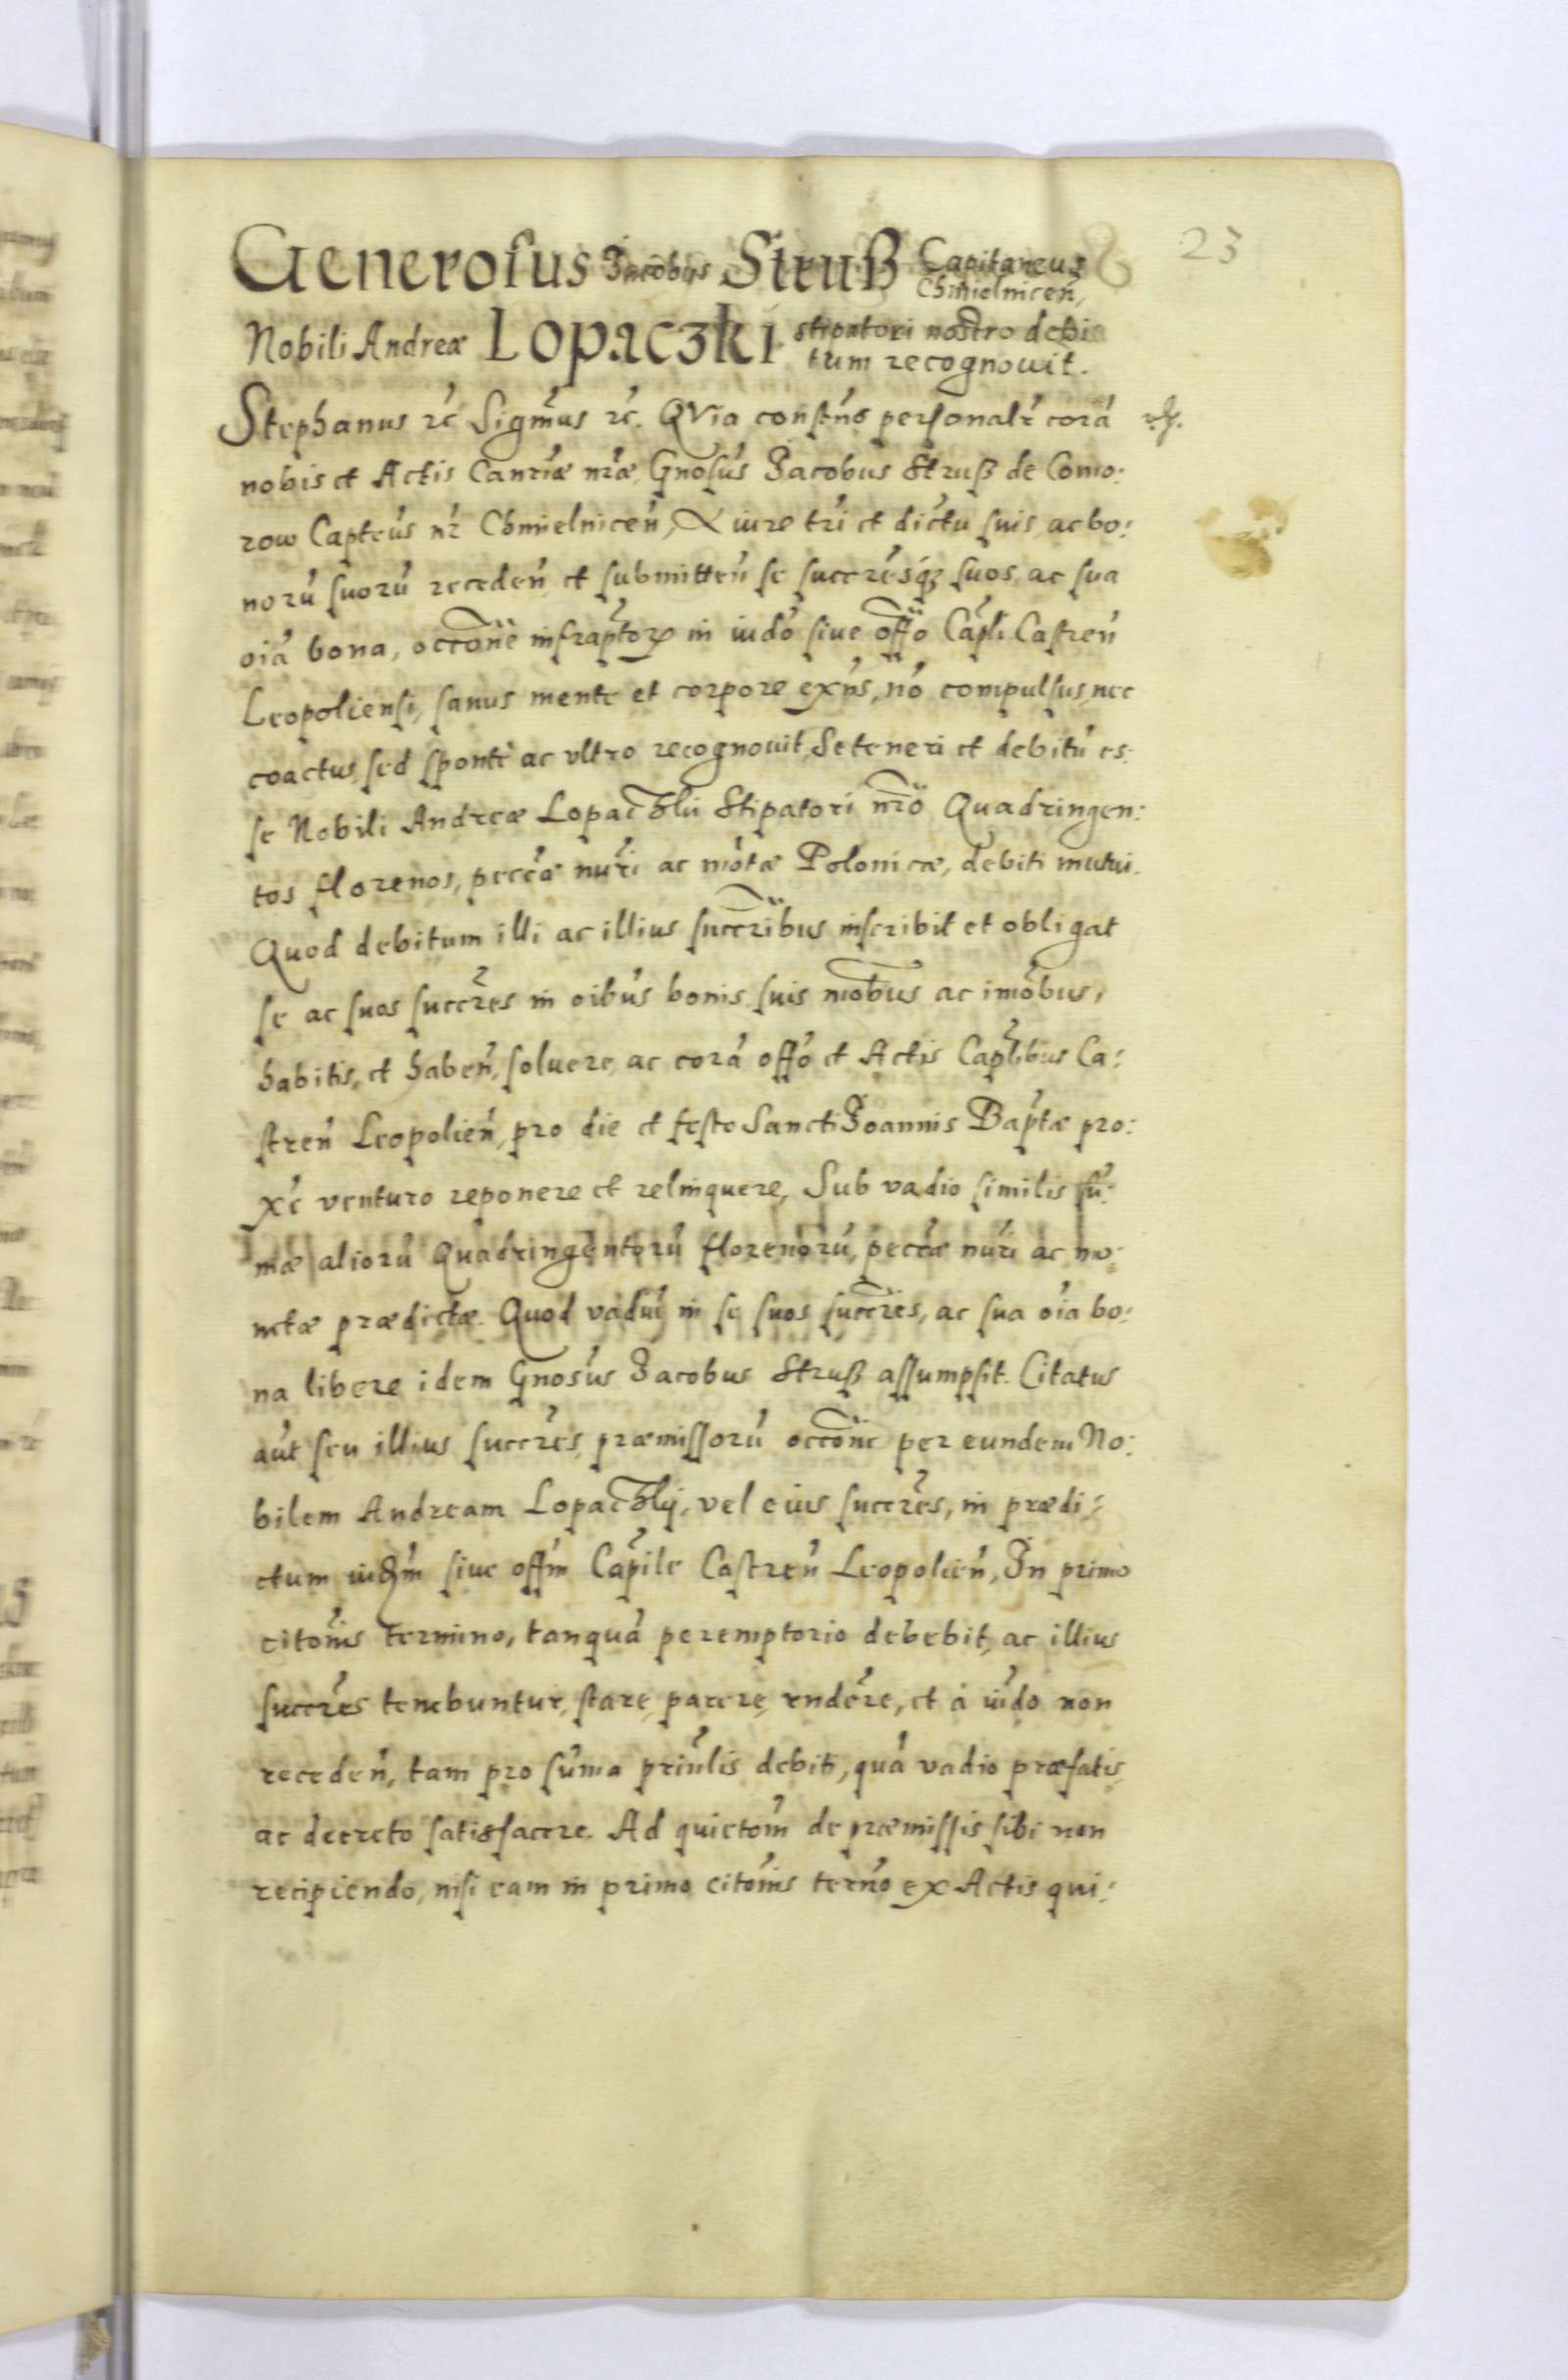 23
Generosus Jacobus Struß Capitaneus
Chmielnicen̄,
Nobili Andreæ Lopaczki stipatori nostro debi
tum recognouit.
Stephanus rć Sigm̃us rć. QVia constńs personalr̃ corá
nobis et Actis Canr̃iæ nr̃æ, Gnosús Jacobus Struß de Como:
row Capteús nr̃ Chmielnicen̄, A iure tr̃i et dictu suis, ac bo:
norú suorú receden̄ et submitten̄ se succr̃esq́ꝫ suos, ac sua
oiá bona, occõne infraptorꝝ in iudó siue offõ Capl̃i Castren̄
Leopoliensi, sanus mente et corpore exńs, nó compulsus, nec
coactus, sed sponte ac vltro recognouit, Se teneri et debitú es:
se Nobili Andreæ Lopaczkii Stipatori nr̃o Quadringen:
tos florenos, peccæ nur̃i ac mótæ Polonicæ, debiti mutui.
Quod debitum illi ac illius succr̃ibus inscribit et obligat
se ac suos succr̃es in oibús bonis suis mobús ac imobus,
habitis, et haben̄, soluere, ac corá offó et Actis Capl̃ibus Ca:
stren̄ Leopolien̄, pro die et festo Sancti Joannis Baptæ pro:
xé venturo reponere et relinquere, Sub vadio similis sú:
mæ aliorú Quadringentorú florenorú, peccæ nur̃i ac mo:
netæ prædictæ. Quod vadiú in se suos succr̃es, ac sua oiá bo:
na libere idem Gnosús Jacobus Struß assumpsit. Citatus
aút seu illius succr̃es, præmissorú occõne per eundem No:
bilem Andream Lopaczkij, vel eius succr̃es, in prædi:
ctum iudḿ siue offḿ Capile Castren̄ Leopolien̄, In primo
citońis termino, tanquá peremptorio debebit, ac illius
succr̃es tenebuntur, stare, parere, rndére, et á iúdo non
receden̄, tam pro súma prińlis debiti, quá vadio præfatis,
ac decreto satisfacere. Ad quietoḿ de præmissis sibi non
recipiendo, nisi eam in primo citońis terńo ex Actis qui: